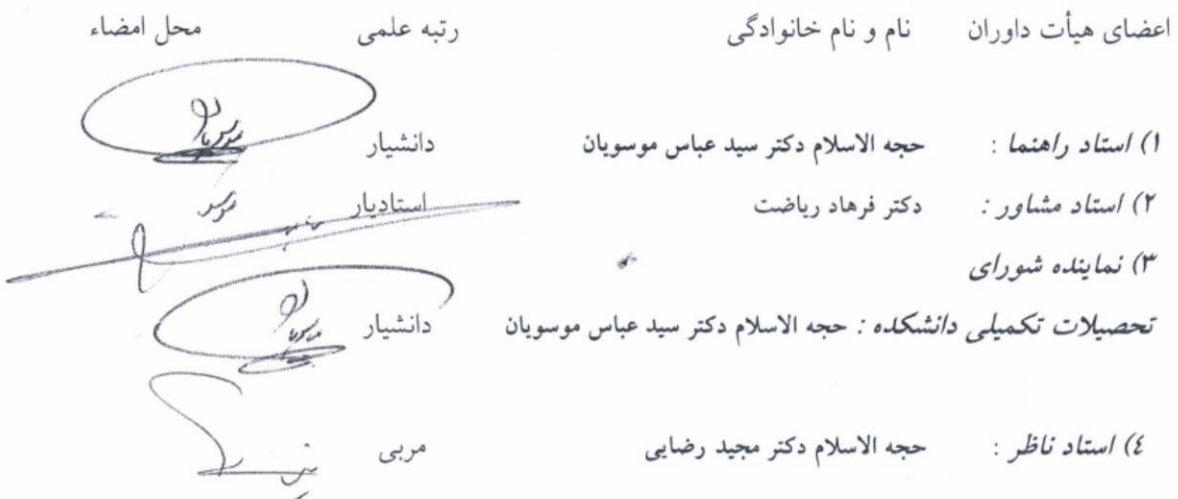 اعضای هیأت داوران نام و نام خانوادگی رتبه علمی محل امضاء
۱) استاد راهنما : حجه الاسلام دکتر سید عباس موسویان دانشیار
۲) استاد مشاور : دکتر فرهاد ریاضت استادیار
۳) نماینده شورای
تحصیلات تکمیلی دانشکده : حجه الاسلام دکتر سید عباس موسویان دانشیار
٤) استاد ناظر : حجه الاسلام دکتر مجید رضایی مربی